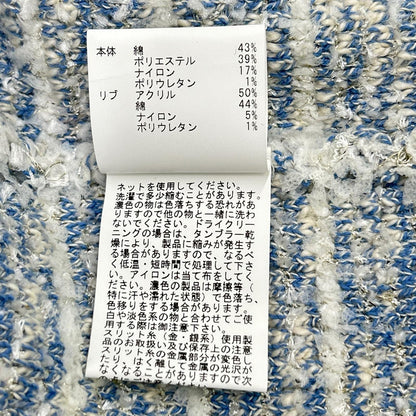 本体 綿 43%
ポリエステル 39%
ナイロン 17%
ポリウレタン 1%
リブ アクリル 50%
綿 44%
ナイロン 5%
ポリウレタン 1%
ネットを使用してください。
洗濯で多少縮むことがあります。
濃色の物は色落ちする恐れがあ
りますので他の物と一緒に洗わ
ないでください。ドライクリー
ニングの場合は、タンブラー乾
燥により、製品に縮みが発生す
る場合がありますので、なるべ
く低温・短時間で処理して下さ
い。アイロンは当て布をしてく
ださい。濃色の製品は摩擦等(
特に汗や濡れた状態)で色落ち、
色移りをする場合があります。
白や淡色系の物と合わせてご使
用する際は御注意下さい。
スリット糸(金・銀系)使用製
品のお取扱い及び保存上の注意
スリット糸の金属部分が変色し
たり、はく離して金属の光沢が
なくなることがありますので次